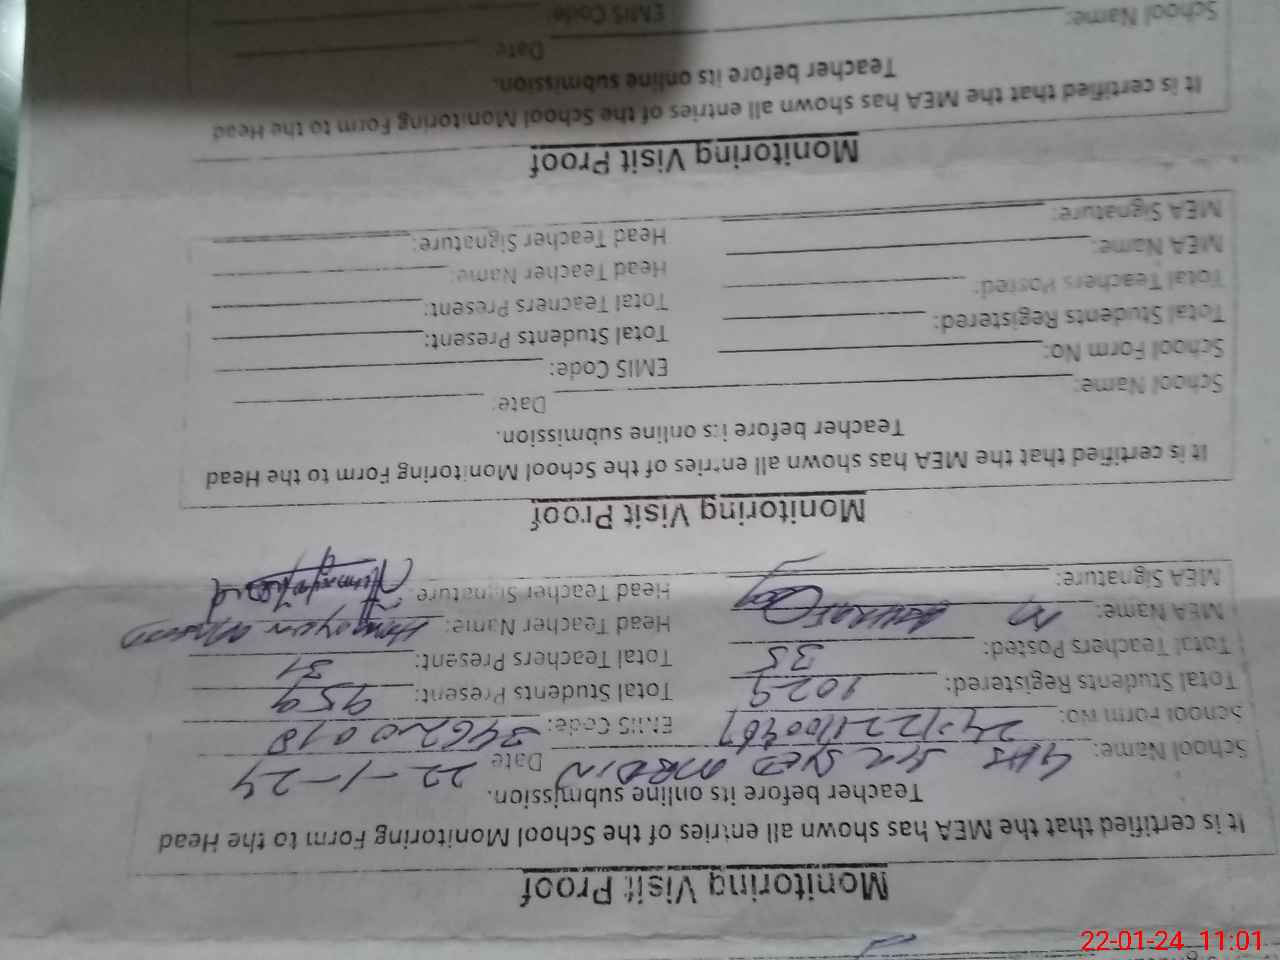 Monitoring Visit Proof
It is certified that the MEA has shown all entries of the School Monitoring Form to the Head
Teacher before its online submission.
School Name: GHS Date 22-1-24
School Form No: EMIS Code: 34620018
Total Students Registered: 1029 Total Students Present: 959
Total Teachers Posted: 35 Total Teachers Present: 31
MEA Name: M Head Teacher Name: Humayun
MEA Signature: Head Teacher Signature:
Monitoring Visit Proof
It is certified that the MEA has shown all entries of the School Monitoring Form to the Head
Teacher before its online submission.
School Name: Date:
School Form No: EMIS Code:
Total Students Registered: Total Students Present:
Total Teachers Posted: Total Teachers Present:
MEA Name: Head Teacher Name:
MEA Signature: Head Teacher Signature:
Monitoring Visit Proof
It is certified that the MEA has shown all entries of the School Monitoring Form to the Head
Teacher before its online submission.
School Name: Date
EMIS Code
22-01-24 11:01